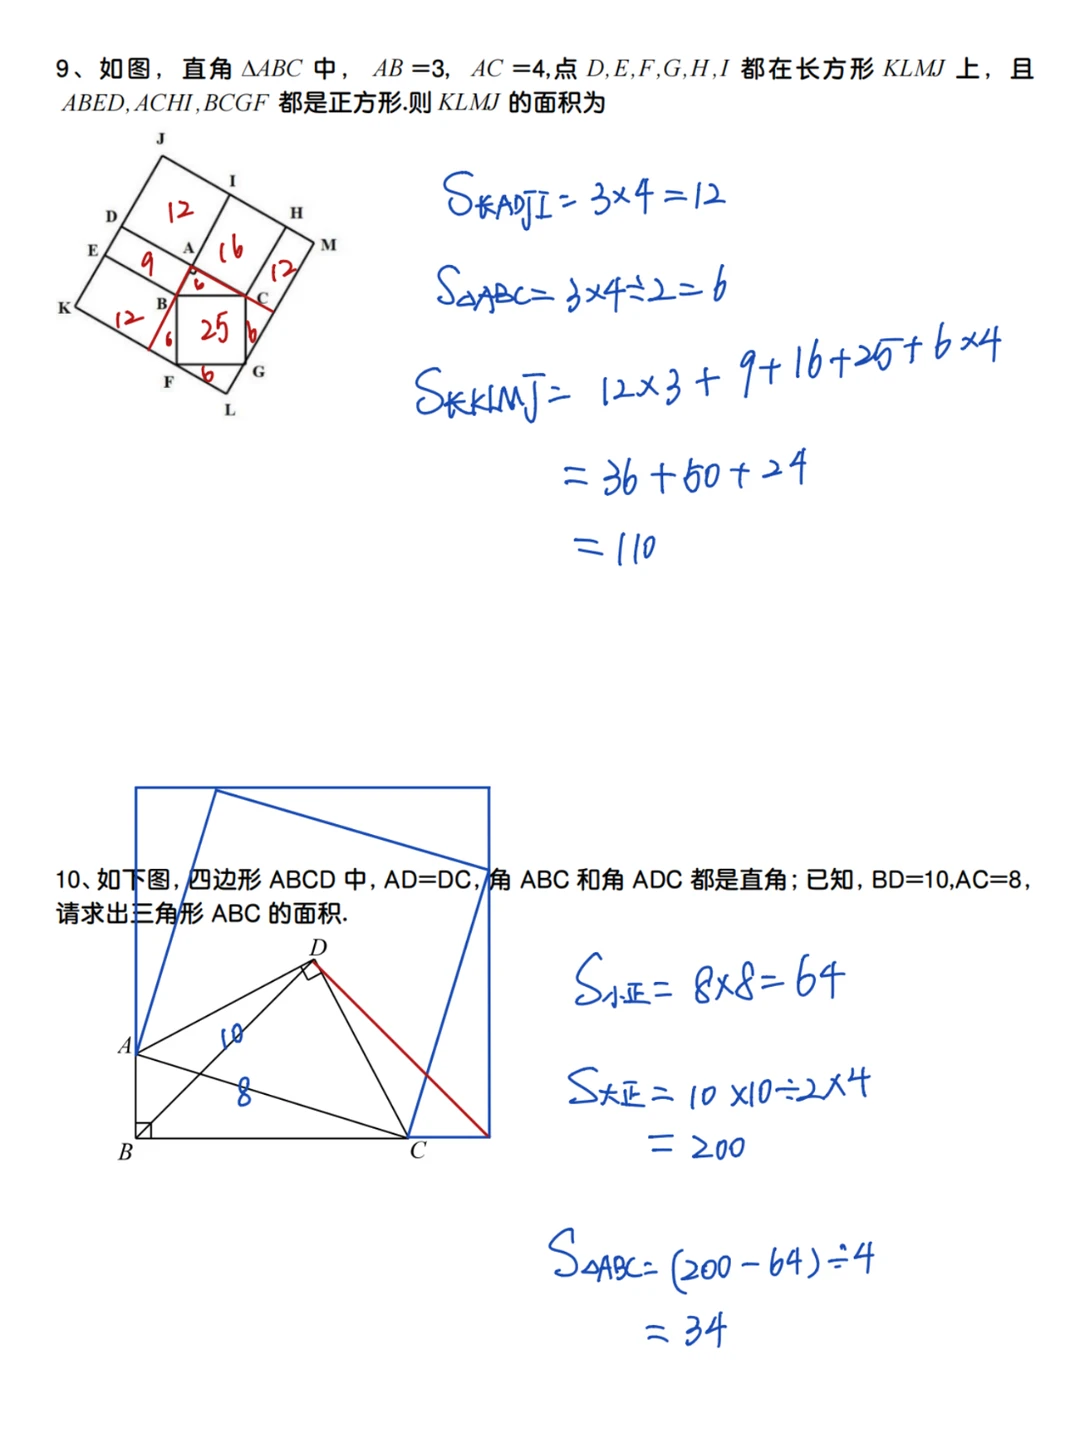 9、如图，直角 ΔABC 中， AB =3， AC =4,点 D,E,F,G,H,I 都在长方形 KLMJ 上，且
ABED, ACHI, BCGF 都是正方形.则 KLMJ 的面积为
J
I
D
12
H
E
A
16
M
9
6
12
K
B
C
12
25
6
6
F
6
G
L
S长ADJI = 3×4=12
S△ABC= 3×4÷2=6
S长KLMJ= 12×3+9+16+25+6×4
=36+50+24
=110
10、如下图，四边形 ABCD 中，AD=DC，角 ABC 和角 ADC 都是直角；已知，BD=10,AC=8，
请求出三角形 ABC 的面积.
D
A
10
8
B
C
S小正= 8×8=64
S大正= 10×10÷2×4
= 200
S△ABC= (200-64)÷4
= 34